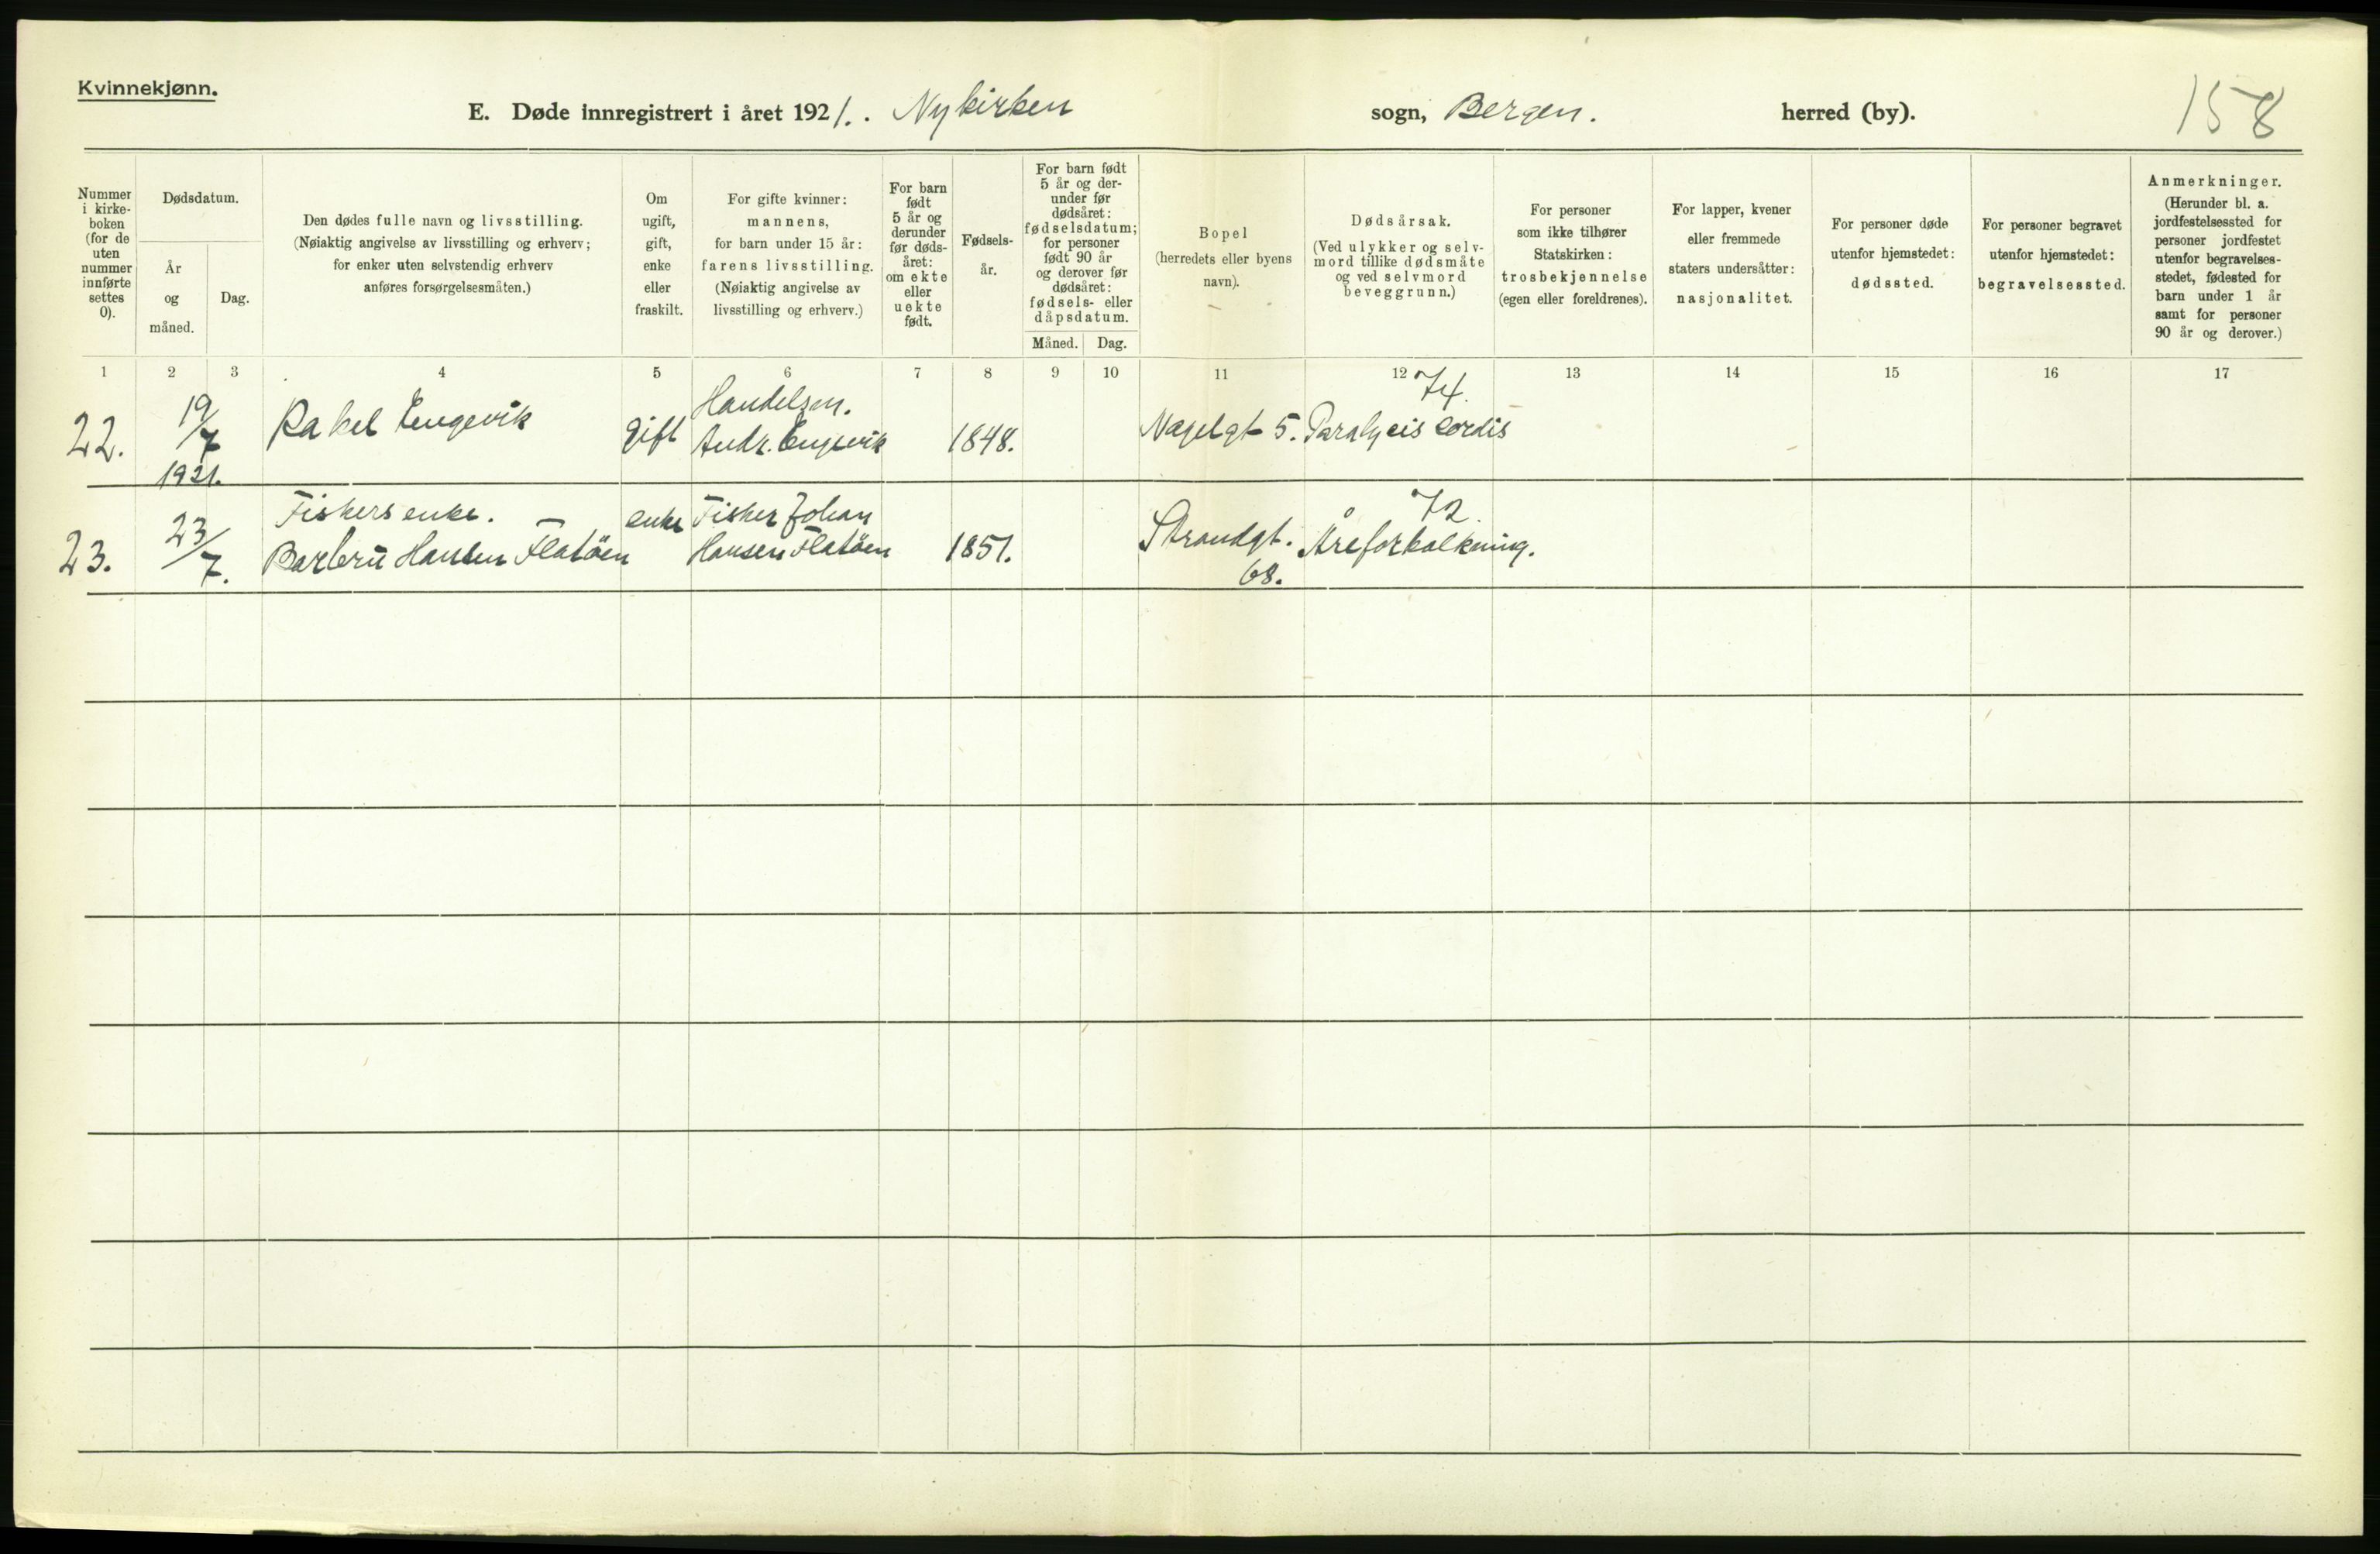 Kvinnekjønn.
E. Døde innregistrert i året 1921. . Nykirken sogn, Bergen. herred (by). 158
Nummer
i kirke-
boken
(for de
uten
nummer
innførte
settes
0).
Dødsdatum.
År
og
måned.
Dag.
Den dødes fulle navn og livsstilling.
(Nøiaktig angivelse av livsstilling og erhverv;
for enker uten selvstendig erhverv
anføres forsørgelsesmåten.)
Om
ugift,
gift,
enke
eller
fraskilt.
For gifte kvinner:
mannens,
for barn under 15 år:
farens livsstilling.
(Nøiaktig angivelse av
livsstilling og erhverv.)
For barn
født
5 år og
derunder
før døds-
året:
om ekte
eller
uekte
født.
Fødsels-
år.
For barn født
5 år og der-
under før
dødsåret:
fødselsdatum;
for personer
født 90 år
og derover før
dødsåret:
fødsels- eller
dåpsdatum.
Måned. Dag.
Bopel
(herredets eller byens
navn).
Dødsårsak.
(Ved ulykker og selv-
mord tillike dødsmåte
og ved selvmord
beveggrunn.)
For personer
som ikke tilhører
Statskirken:
trosbekjennelse
(egen eller foreldrenes).
For lapper, kvener
eller fremmede
staters undersåtter:
nasjonalitet.
For personer døde
utenfor hjemstedet:
dødssted.
For personer begravet
utenfor hjemstedet:
begravelsessted.
Anmerkninger.
(Herunder bl. a.
jordfestelsessted for
personer jordfestet
utenfor begravelses-
stedet, fødested for
barn under 1 år
samt for personer
90 år og derover.)
1 2 3 4 5 6 7 8 9 10 11 12 13 14 15 16 17
22.
19/7
1921.
Rakel Engevik
gift
Handelsm.
Andr. Engevik
1848.
Nagelgt 5.
74.
Paralysis cordis
23.
23/7.
Fiskers enke.
Barbru Hansen Flatöen
enke
Fisker Johan
Hansen Flatöen
1851.
Strandgt.
68.
72.
Åreforkalkning.